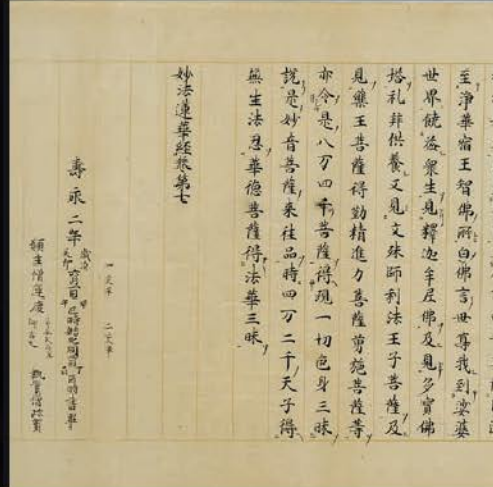 至淨華宿王智佛所白佛言世尊我到娑婆
世界饒益衆生見釋迦牟尼佛及見多寶佛
塔礼拜供養又見文殊師利法王子菩薩及
見藥王菩薩得勤精進力菩薩勇施菩薩等
亦令是八万四千菩薩得現一切色身三昧
說是妙音菩薩來往品時四万二千天子得
無生法忍華德菩薩得法華三昧
妙法蓮華經卷第七
一交了 二交了
壽永二年歲次癸卯
願主僧運慶 執筆僧珍賀